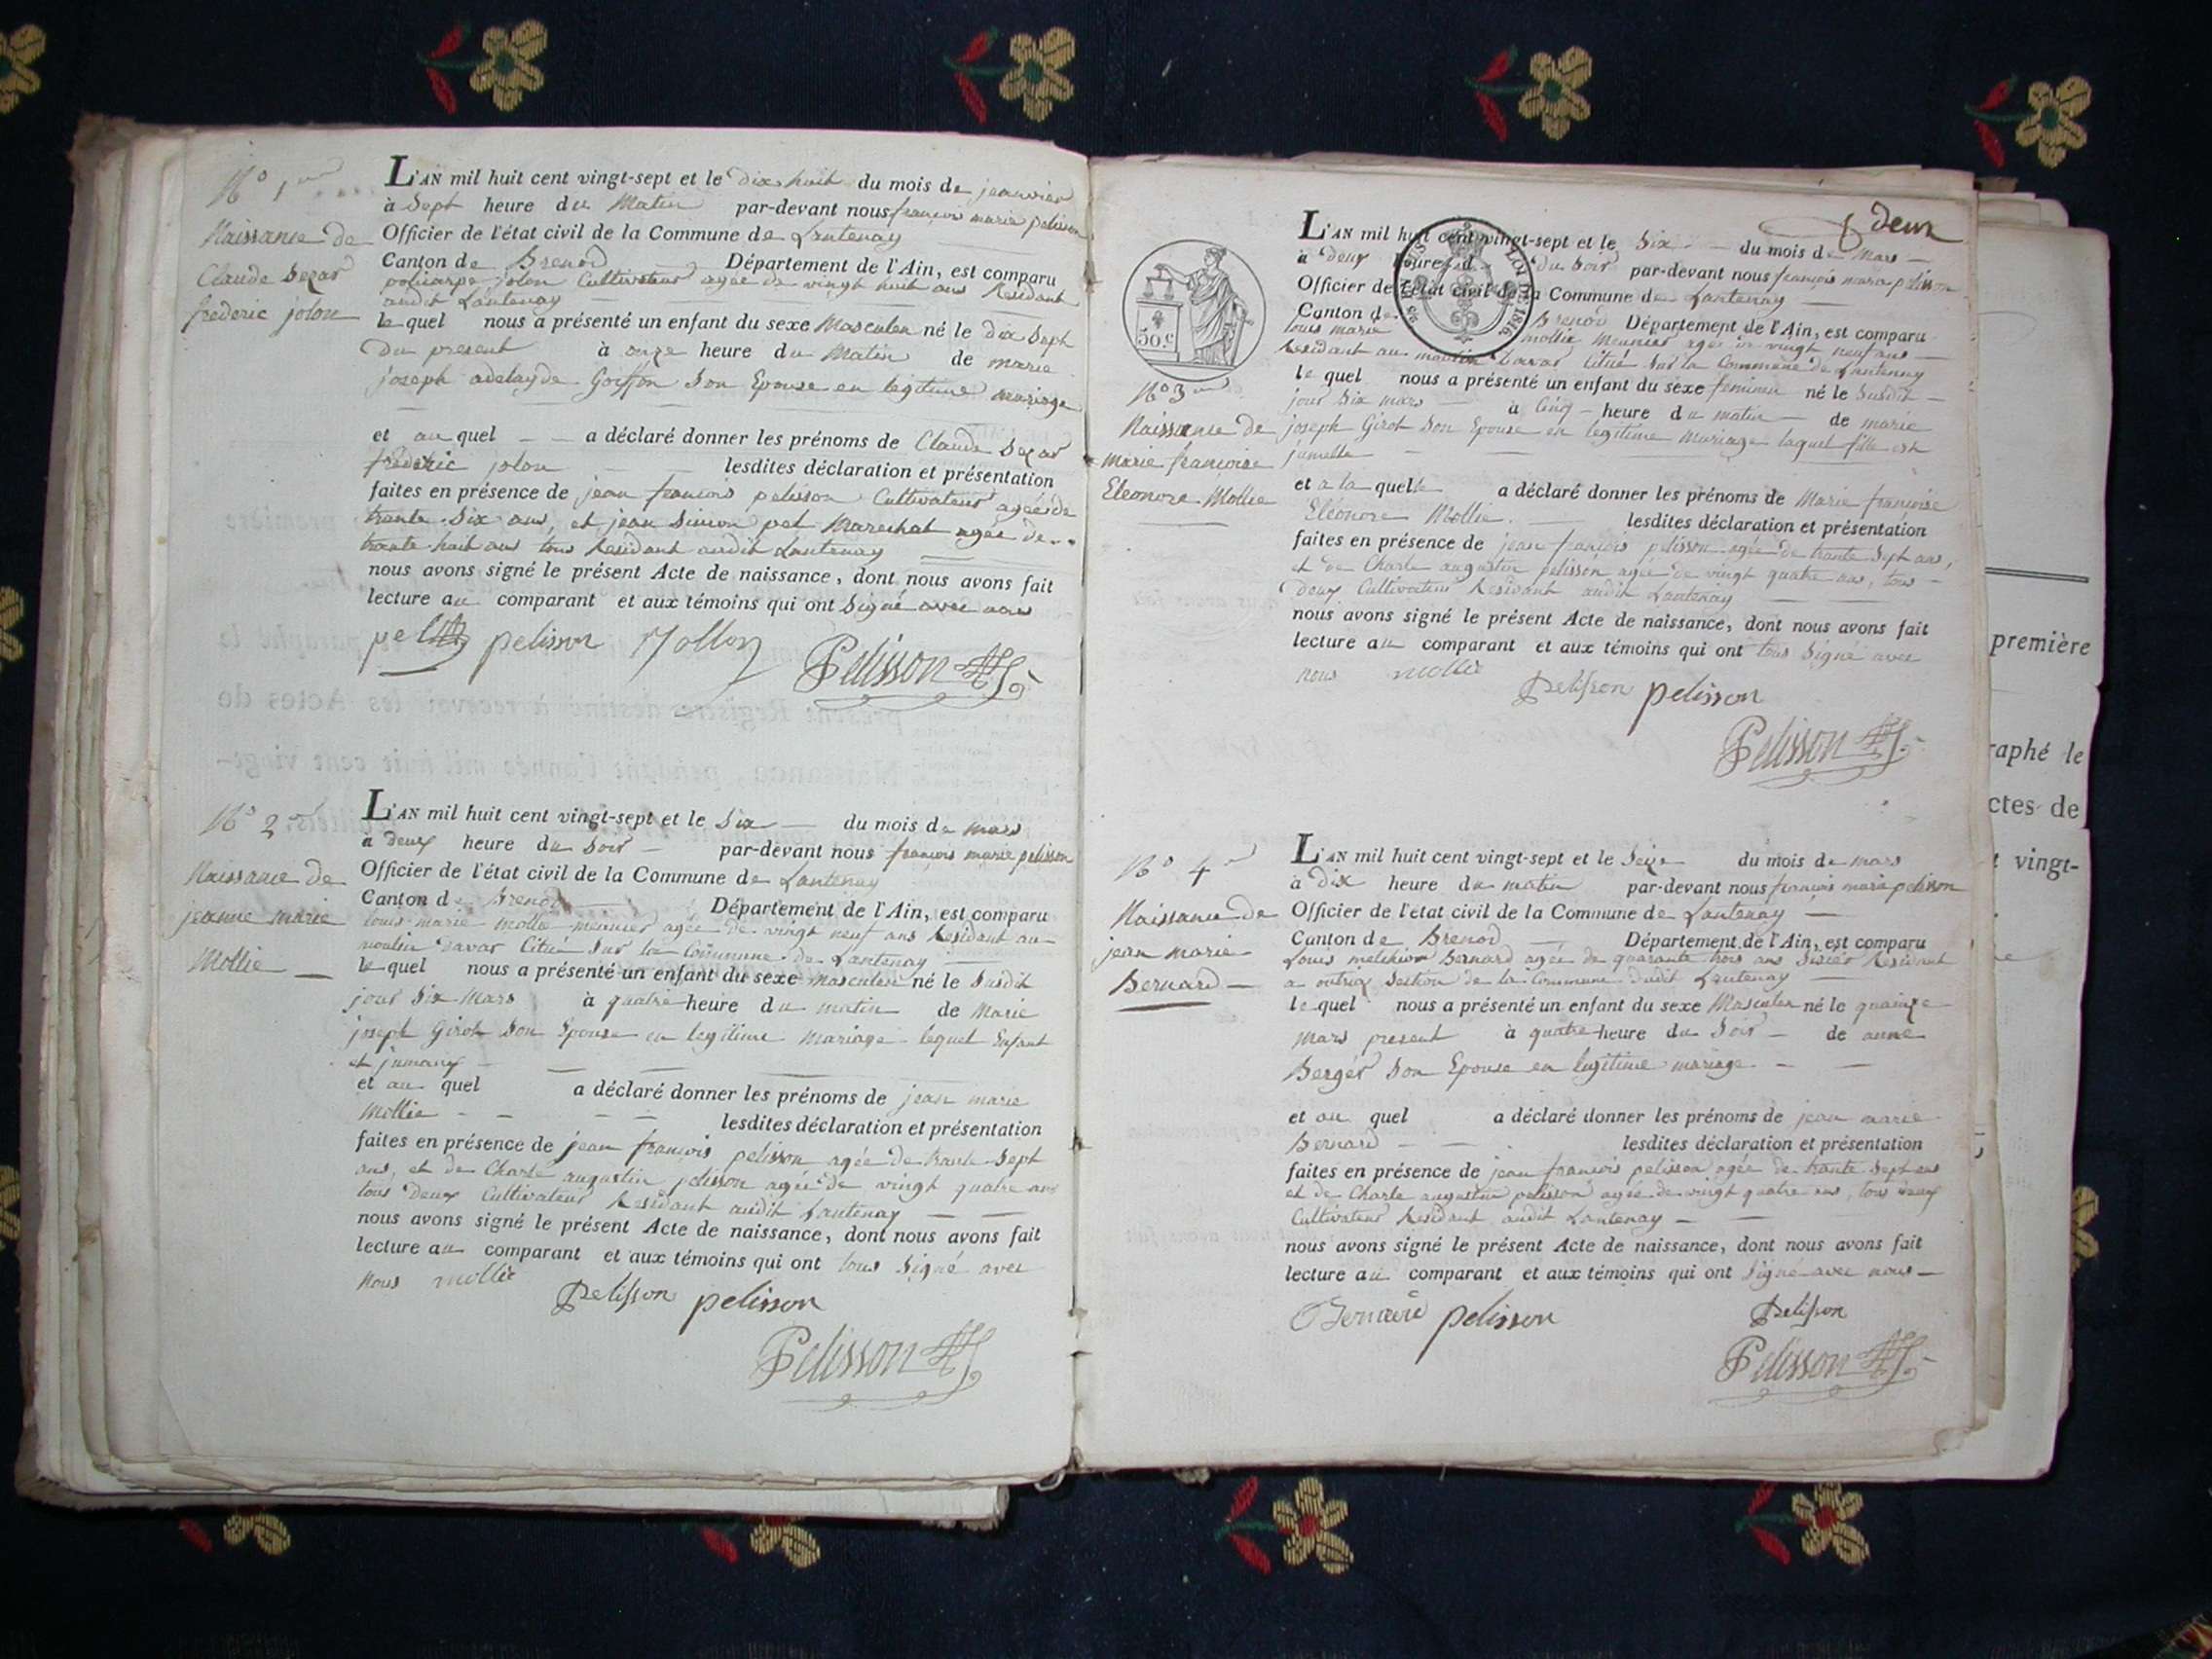 N° 1er
Naissance de
Claude Sezar
frederic jolon
L'AN mil huit cent vingt-sept et le dix huit du mois de jeanvier
à Sept heure du Matin par-devant nous françois marie pelisson
Officier de l'état civil de la Commune de Lantenay
Canton de Brenod Département de l'Ain, est comparu
policarpe jolon Cultivateur agée de vingt huit ans Residant
audit Lantenay
le quel nous a présenté un enfant du sexe Masculen né le dix Sept
du present à onze heure du Matin de marie
joseph adelayde Goiffon Son Epouse en legitime mariage
et au quel a déclaré donner les prénoms de Claude Sezar
frederic jolon lesdites déclaration et présentation
faites en présence de jean françois pelisson Cultivateur agée de
trante Six ans, et jean Simon pet Marechal agée de
trante huit ans tous Residant audit Lantenay
nous avons signé le présent Acte de naissance, dont nous avons fait
lecture au comparant et aux témoins qui ont Signé avec nous
pelisson Jollon
Pelisson
N° 2
Naissance de
jeanne marie
Mollie
L'AN mil huit cent vingt-sept et le Six du mois de mars
à deux heure du Soir par-devant nous françois marie pelisson
Officier de l'état civil de la Commune de Lantenay
Canton de Brenod Département de l'Ain, est comparu
louis marie mollie meunier agée de vingt neuf ans Residant au
moulin Davar Citué Sur la Commune de Lantenay
le quel nous a présenté un enfant du sexe masculen né le Susdit
jour Six Mars à quatre heure du matin de Marie
joseph Girot Son Epouse en legitime mariage lequel Enfant
et jumaux
et au quel a déclaré donner les prénoms de jean marie
Mollie lesdites déclaration et présentation
faites en présence de jean françois pelisson agée de trante Sept
ans, et de Charle augustin pelisson agée de vingt quatre ans
tous deux Cultivateur Residant audit Lantenay
nous avons signé le présent Acte de naissance, dont nous avons fait
lecture au comparant et aux témoins qui ont tous Signé avec
nous mollie
Pelisson pelisson
Pelisson
deux
50 c
LOI DE 1816.
N° 3
Naissance de
Marie françoise
Eleonore Mollie
L'AN mil huit cent vingt-sept et le Six du mois de Mars
à deux heure du Soir par-devant nous françois marie pelisson
Officier de l'état civil de la Commune de Lantenay
Canton de Brenod Département de l'Ain, est comparu
louis marie mollie meunier agée de vingt neuf ans
Residant au moulin Davar Citué Sur la Commune de Lantenay
le quel nous a présenté un enfant du sexe feminin né le Susdit
jour Six mars à Cinq heure du matin de marie
joseph Girot Son Epouse en legitime mariage laquel fille est
jumelle
et a la quelle a déclaré donner les prénoms de Marie françoise
Eléonore Mollie lesdites déclaration et présentation
faites en présence de jean françois pelisson agée de trante Sept ans,
et de Charle augustin pelisson agée de vingt quatre ans, tous
deux Cultivateur Residant audit Lantenay
nous avons signé le présent Acte de naissance, dont nous avons fait
lecture au comparant et aux témoins qui ont tous Signé avec
nous mollie
Pelisson pelisson
Pelisson
N° 4
Naissance de
jean marie
Bernard
L'AN mil huit cent vingt-sept et le Seize du mois de mars
à Dix heure du matin par-devant nous françois marie pelisson
Officier de l'état civil de la Commune de Lantenay
Canton de Brenod Département de l'Ain, est comparu
Louis melchior Bernard agée de quarante trois ans Residant
a outriaz Section de la Commune dudit Lantenay
le quel nous a présenté un enfant du sexe Masculen né le quainze
mars present à quatre heure du Soir de anne
Berger Son Epouse en legitime mariage
et au quel a déclaré donner les prénoms de jean marie
Bernard lesdites déclaration et présentation
faites en présence de jean françois pelisson agée de trante Sept ans
et de Charle augustin pelisson agée de vingt quatre ans, tous deux
Cultivateur Residant audit Lantenay
nous avons signé le présent Acte de naissance, dont nous avons fait
lecture au comparant et aux témoins qui ont Signé avec nous
Bernard pelisson Pelisson
Pelisson
première
raphé le
ctes de
vingt-